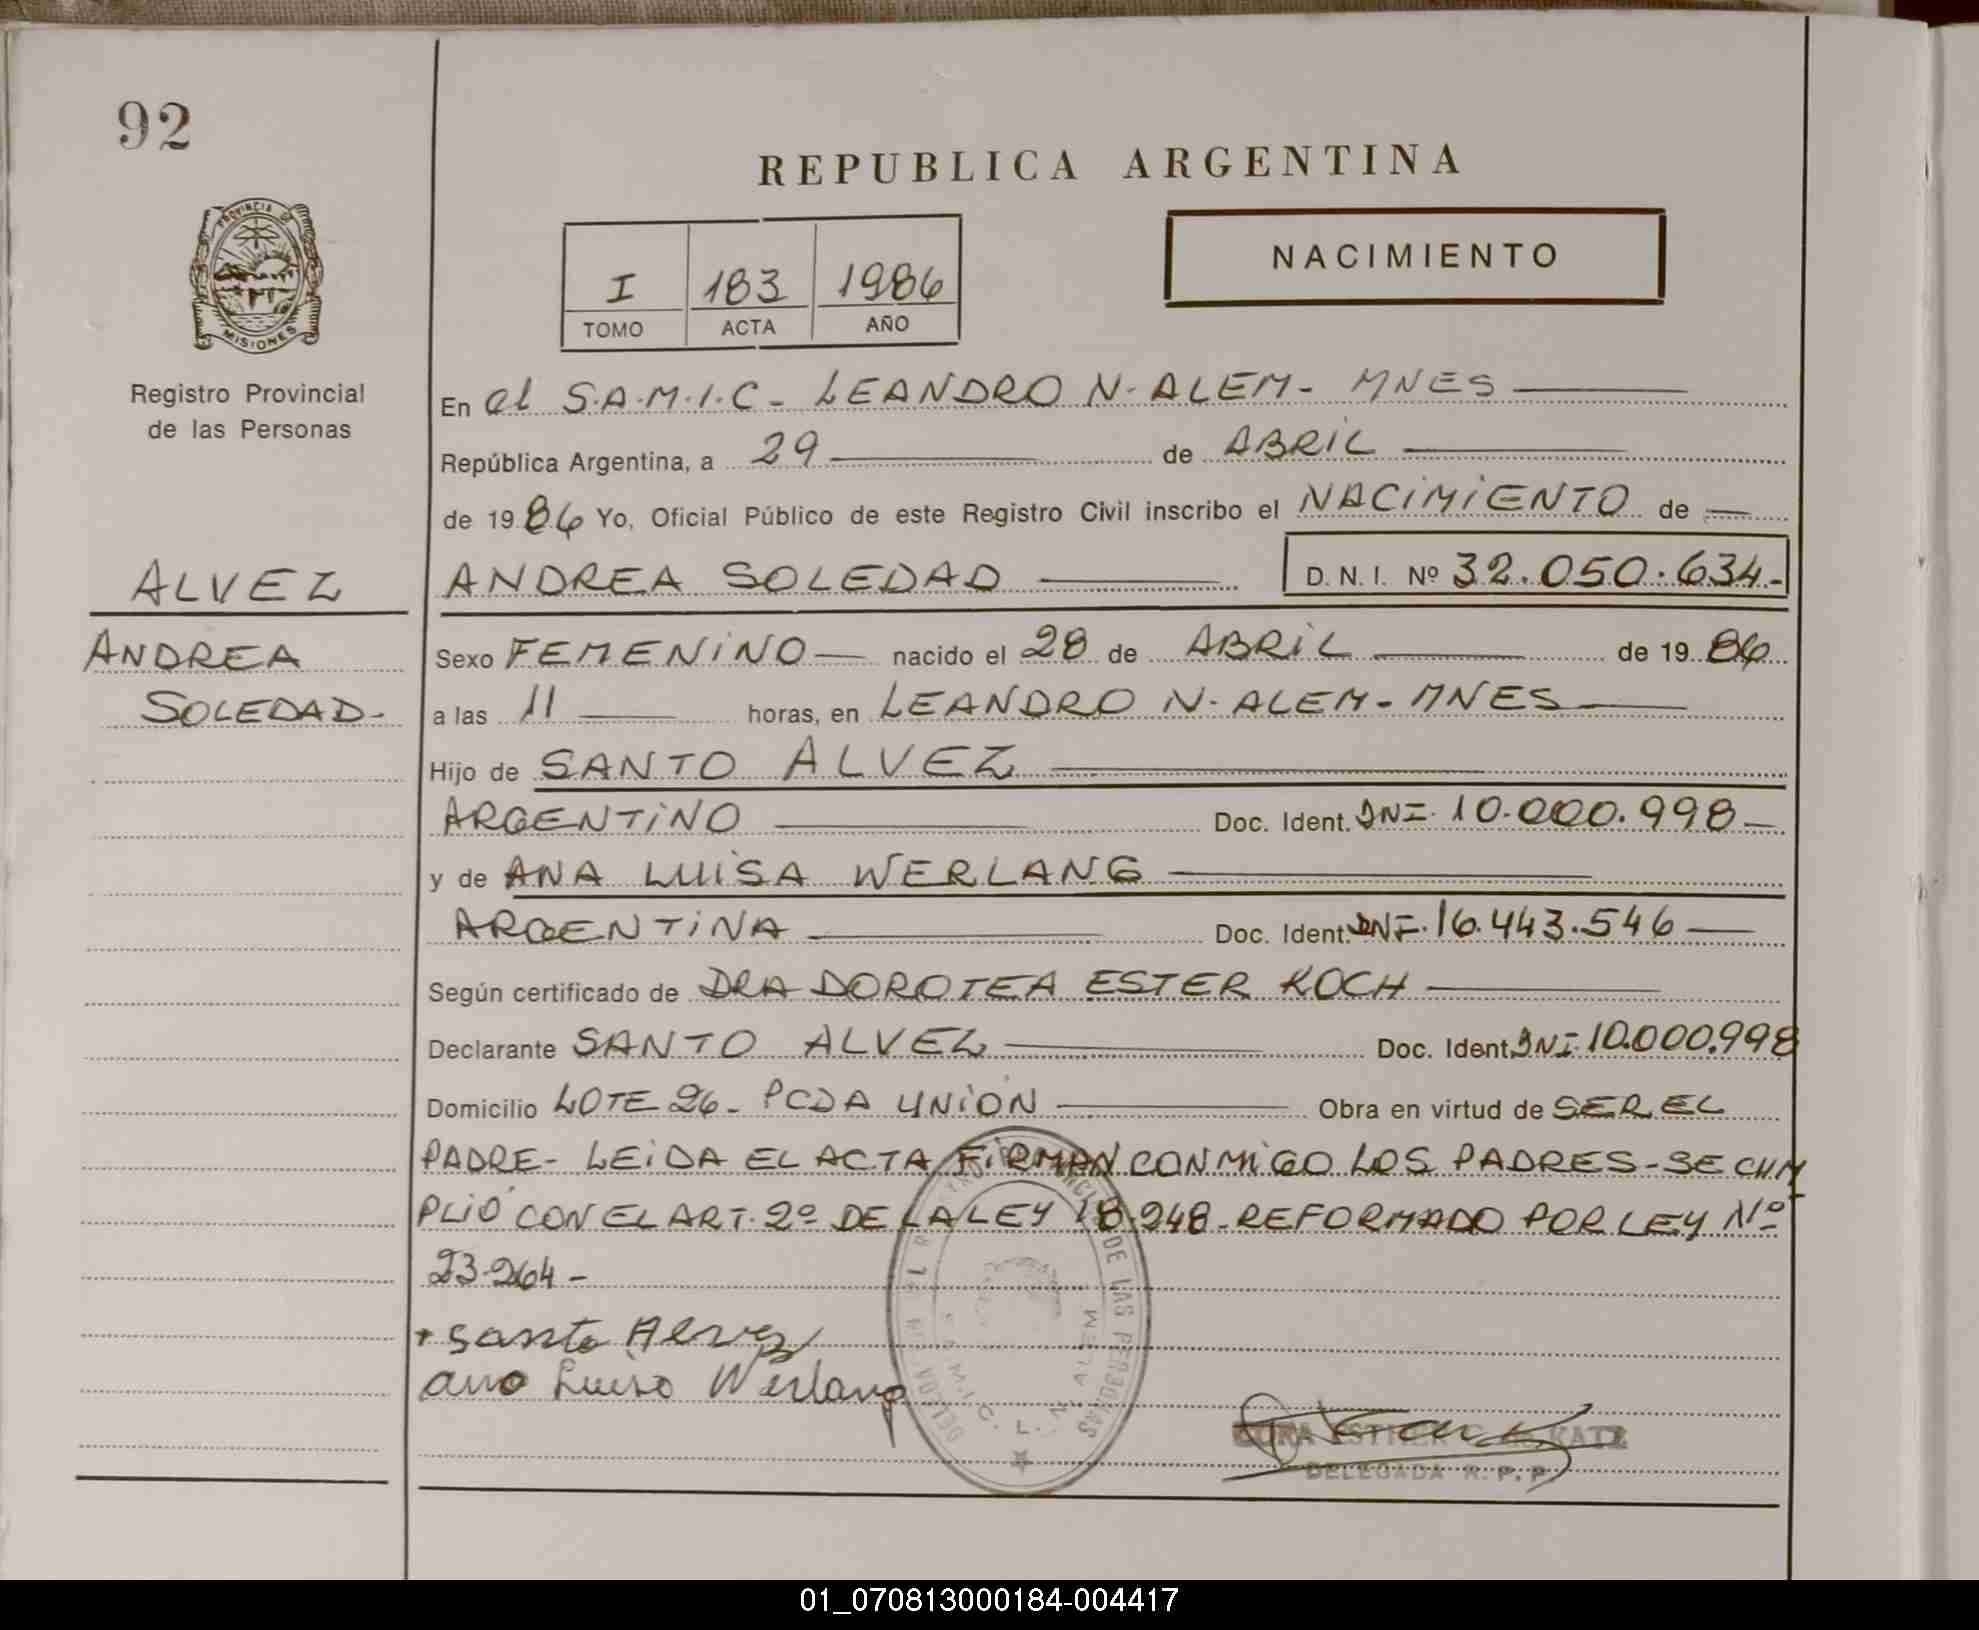 92
REPUBLICA ARGENTINA
PROVINCIA DE
MISIONES
I 183 1986
TOMO ACTA AÑO
NACIMIENTO
Registro Provincial
de las Personas
En el S.A.M.I.C - LEANDRO N. ALEM - MNES
República Argentina, a 29 de ABRIL
de 1986 Yo, Oficial Público de este Registro Civil inscribo el NACIMIENTO de
ALVEZ
ANDREA SOLEDAD D. N. I. Nº 32.050.634.-
ANDREA
SOLEDAD -
Sexo FEMENINO nacido el 28 de ABRIL de 1986
a las 11 horas, en LEANDRO N. ALEM - MNES
Hijo de SANTO ALVEZ
ARGENTINO Doc. Ident. DNI. 10.000.998
y de ANA LUISA WERLANG
ARGENTINA Doc. Ident. DNI. 16.443.546
Según certificado de DRA DOROTEA ESTER KOCH
Declarante SANTO ALVEZ Doc. Ident. DNI. 10.000.998
Domicilio LOTE 26 - PCDA UNIÓN Obra en virtud de SER EL
PADRE - LEIDA EL ACTA FIRMAN CONMIGO LOS PADRES - SE CUM
PLIÓ CON EL ART. 2º DE LA LEY 18.248 - REFORMADO POR LEY Nº
23.264 -
Santo Alvez
Ana Luisa Werlang
DE LAS PERSONAS
S.A.M.I.C. L. N. ALEM
ESTHER KATZ
DELEGADA R. P. P.
01_070813000184-004417